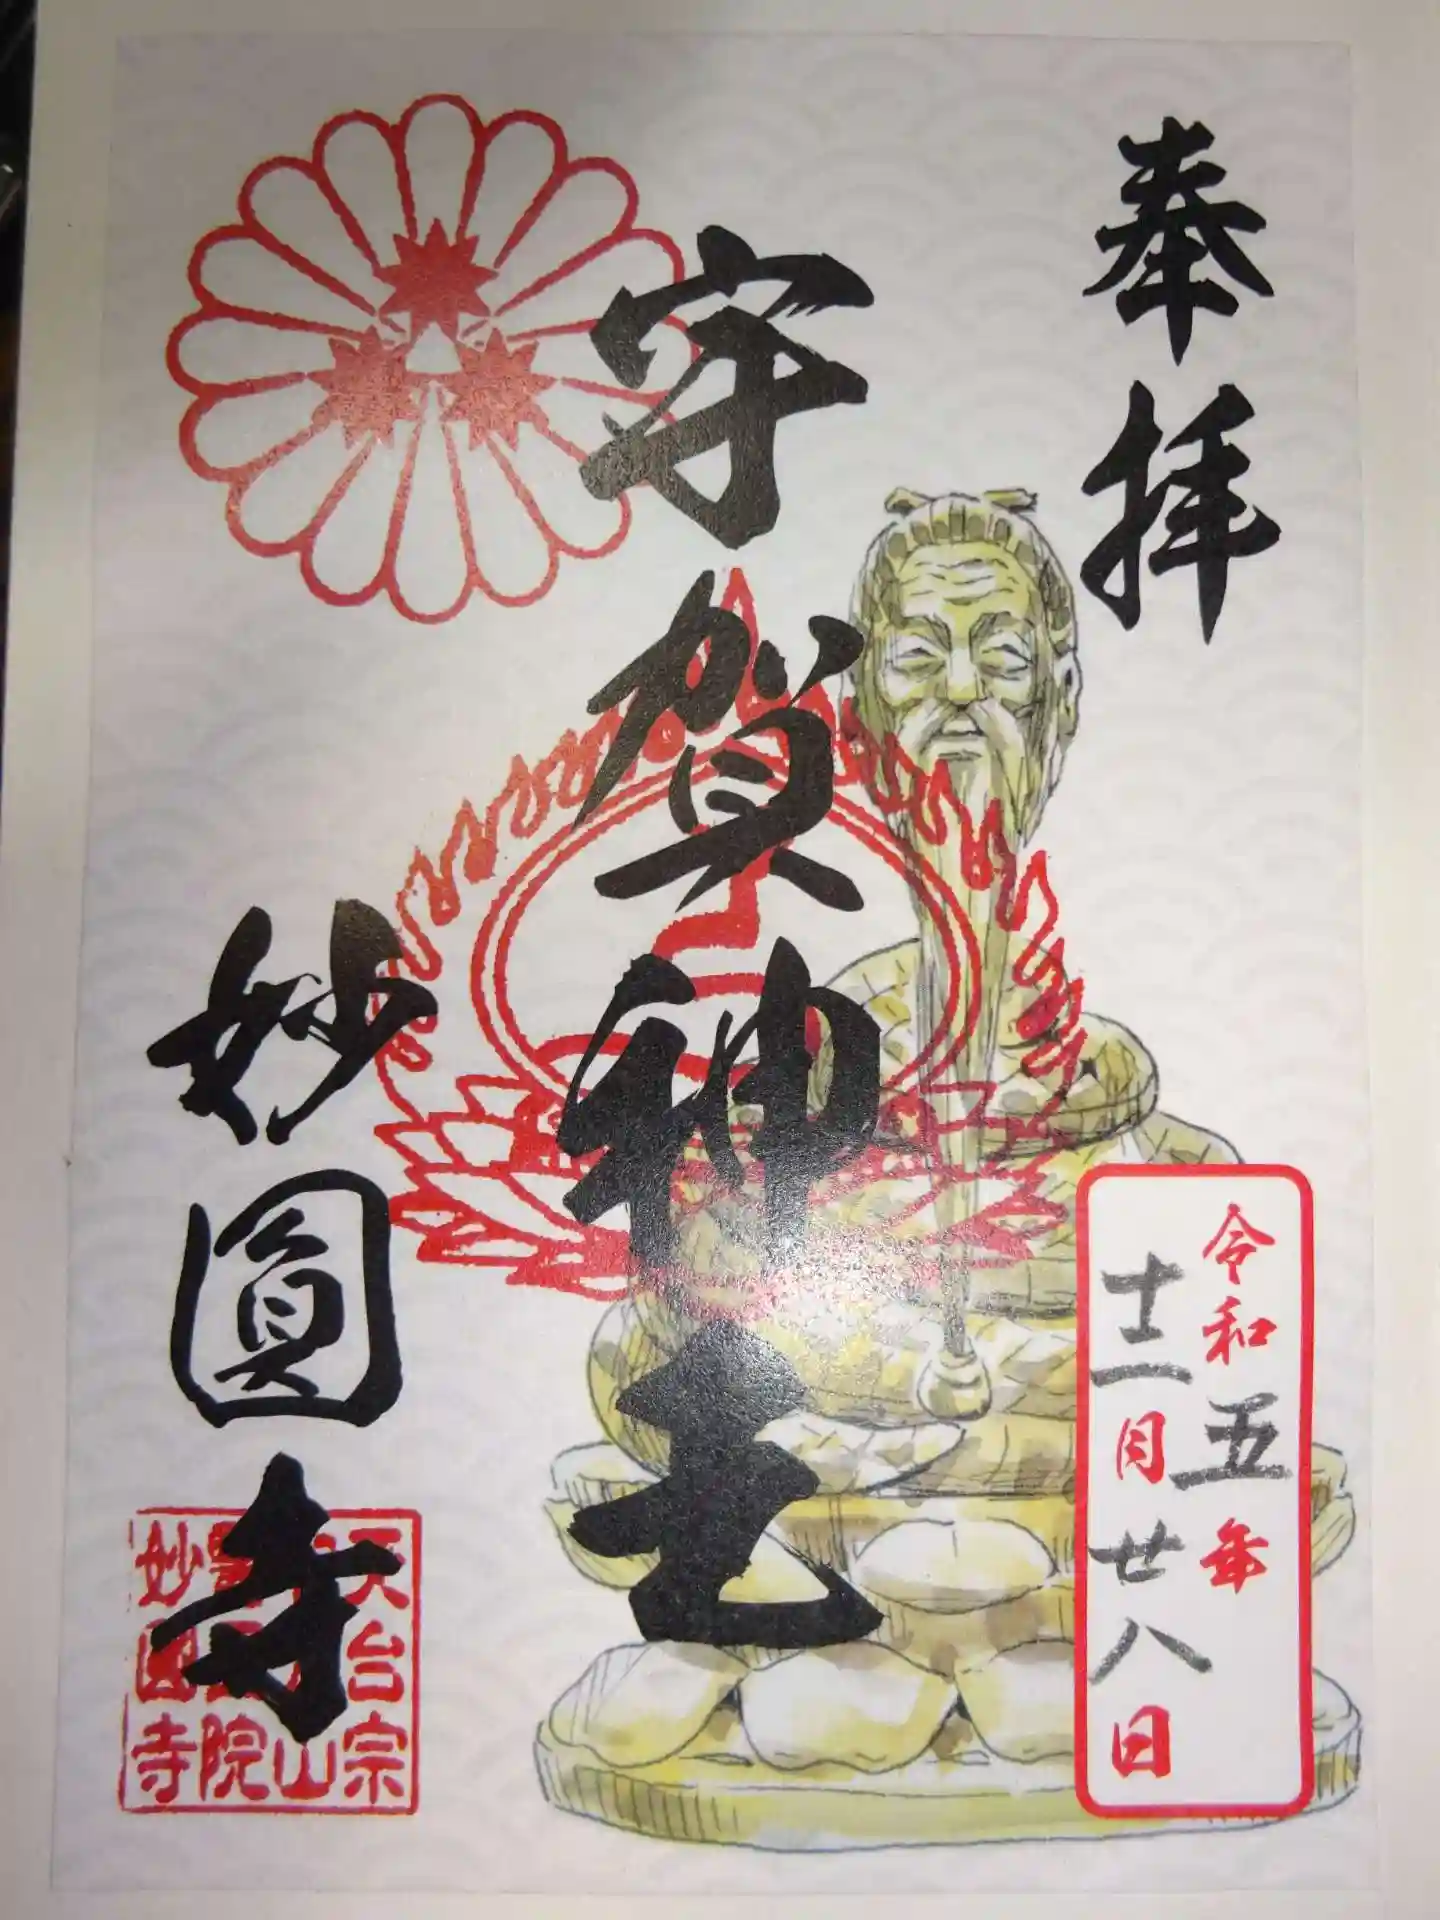 奉拝
令和五年
十二月廿八日
宇賀神王
妙圓寺
天台宗
山
院
妙圓寺